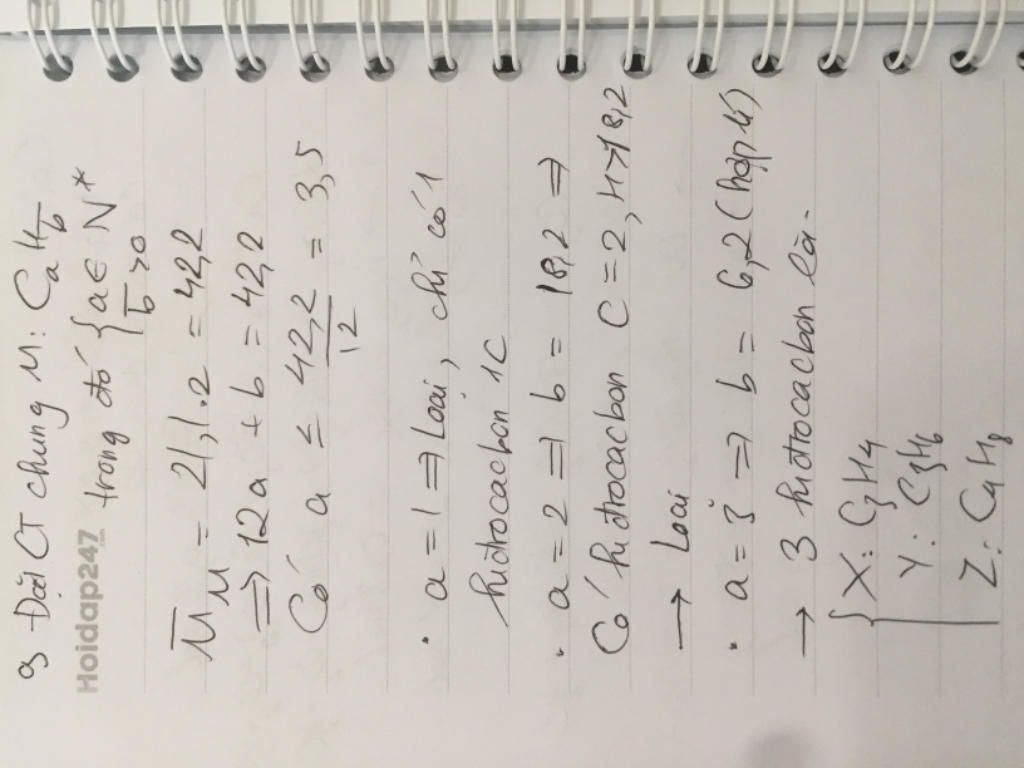 a, Đặt CT chung M: CaHb̅
trong đó { a ∈ N*
b̅ > 0
Hoidap247
.com
M̅M = 21,1.2 = 42,2
=> 12a + b = 42,2
Có a ≤ 42,2/12 = 3,5
• a = 1 => Loại, chỉ có 1
hiđrocacbon 1C
• a = 2 => b = 18,2 =>
Có hiđrocacbon C = 2, H > 18,2
→ Loại
• a = 3 => b = 6,2 (hợp lí)
→ 3 hiđrocacbon là.
{ X: C3H4
Y: C3H6
Z: C3H8